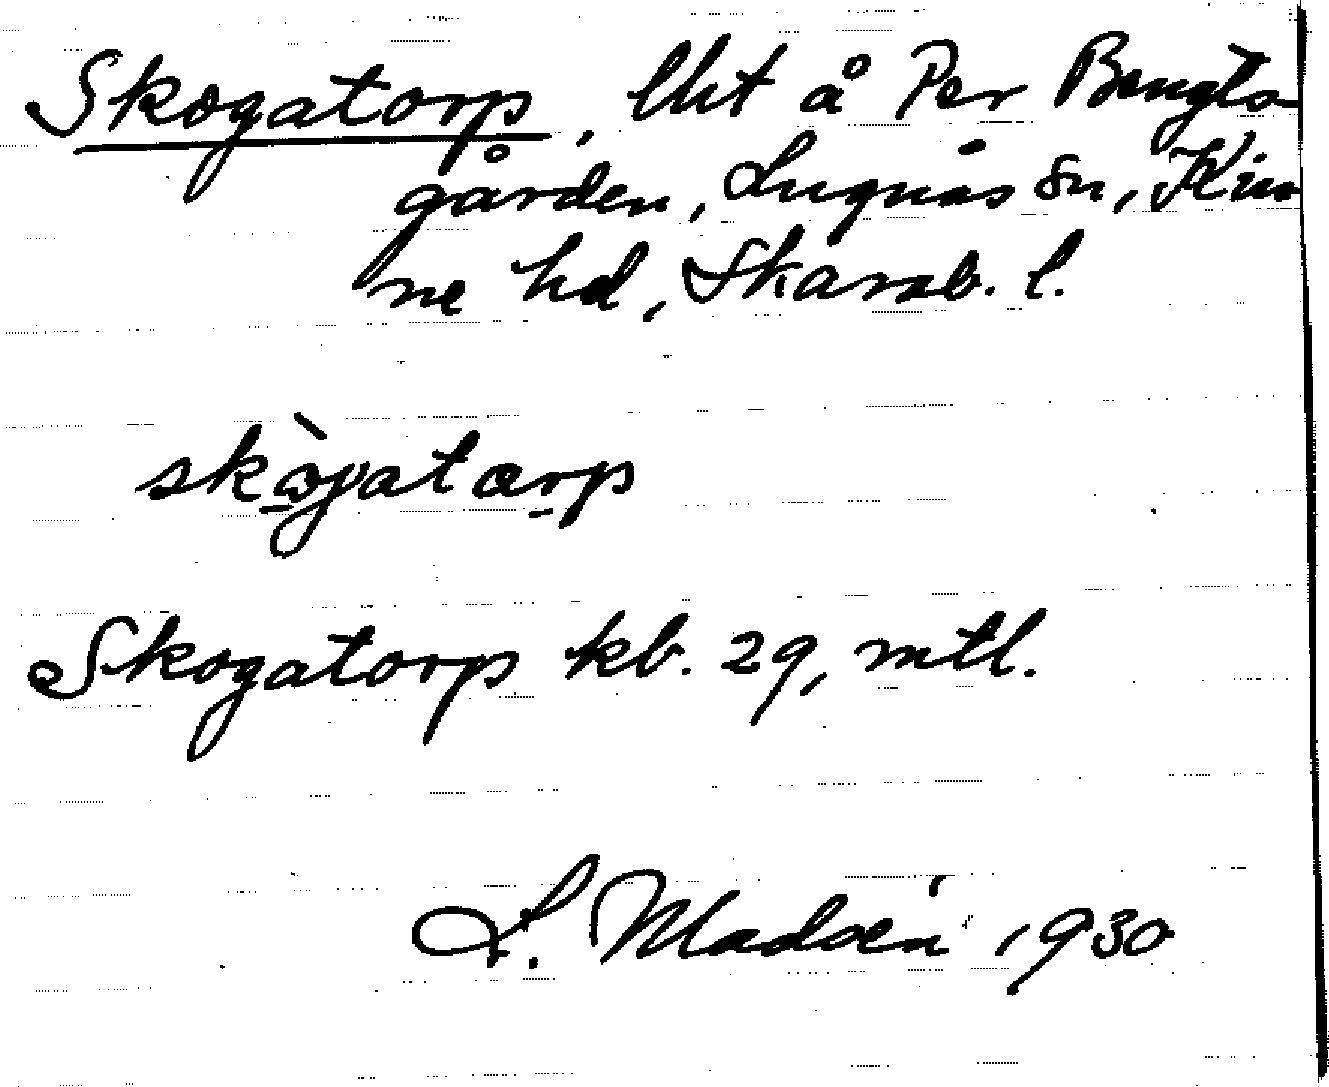 Skogatorp, lht å Per Bengts-
gården, Lugnås sn, Kin
ne hd, Skarab. l.
skògatorp
Skogatorp kb. 29, mtl.
L. Madsén 1930